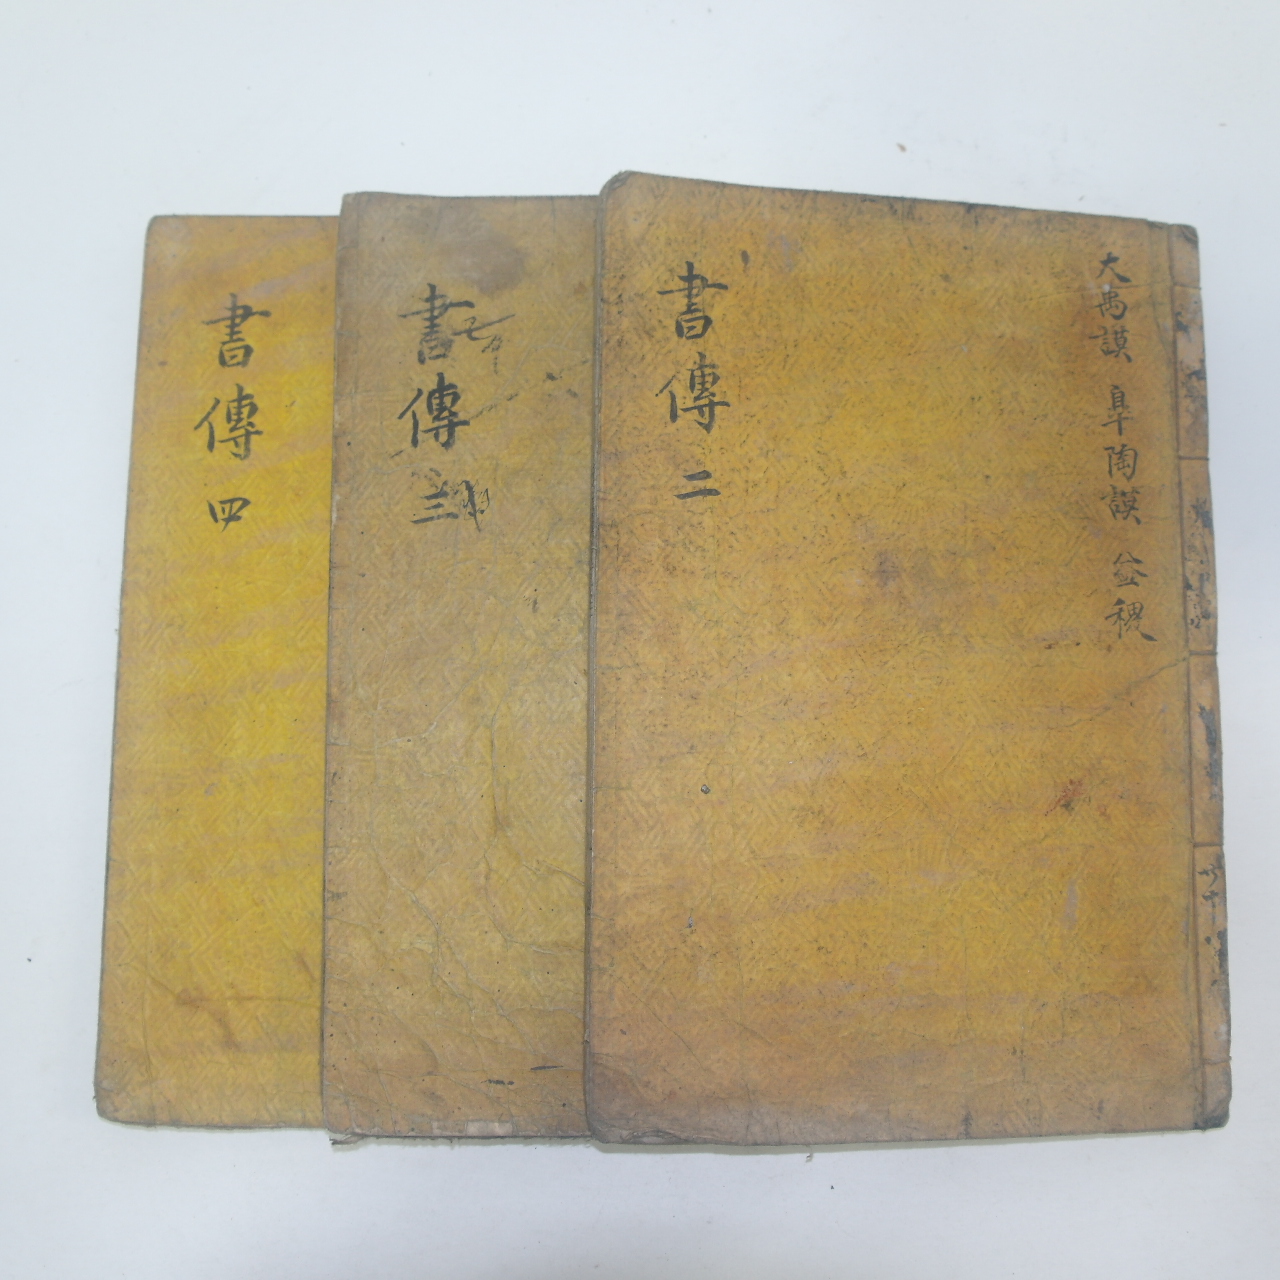 大禹謨 皐陶謨 益稷
書傳 二
書傳 三
書傳 四